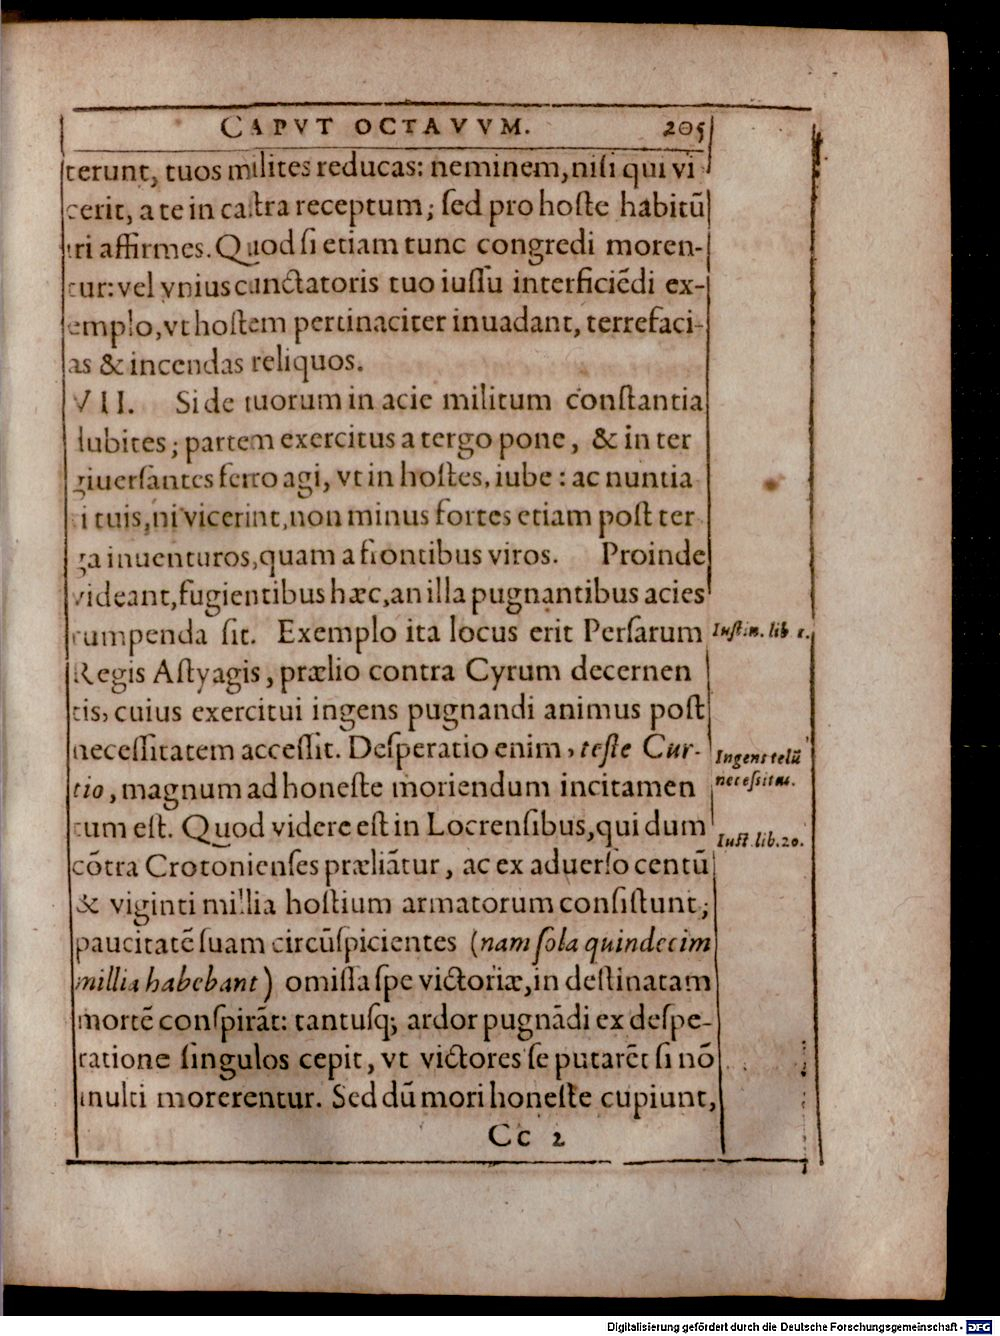 CAPVT OCTAVVM. 205
terunt, tuos milites reducas: neminem, nisi qui vi
cerit, a te in castra receptum; sed pro hoste habitū
iri affirmes. Quod si etiam tunc congredi moren-
tur: vel vnius cunctatoris tuo iussu interficiēdi ex-
emplo, vt hostem pertinaciter inuadant, terrefaci-
as & incendas reliquos.
VII. Si de tuorum in acie militum constantia
dubites; partem exercitus a tergo pone, & in ter
giuersantes ferro agi, vt in hostes, iube: ac nuntia
ri tuis, ni vicerint, non minus fortes etiam post ter
ga inuenturos, quam a frontibus viros. Proinde
videant, fugientibus hæc, an illa pugnantibus acies
rumpenda sit. Exemplo ita locus erit Persarum
Iustin. lib 1.
Regis Astyagis, prælio contra Cyrum decernen
tis, cuius exercitui ingens pugnandi animus post
necessitatem accessit. Desperatio enim, teste Cur-
Ingens telū
necessitas.
tio, magnum ad honeste moriendum incitamen
tum est. Quod videre est in Locrensibus, qui dum
Iust. lib. 20.
cōtra Crotonienses præliātur, ac ex aduerso centū
& viginti millia hostium armatorum consistunt;
paucitatē suam circūspicientes (nam sola quindecim
millia habebant) omissa spe victoriæ, in destinatam
mortē conspirāt: tantusq; ardor pugnādi ex despe-
ratione singulos cepit, vt victores se putarēt si nō
inulti morerentur. Sed dū mori honeste cupiunt,
Cc 2
Digitalisierung gefördert durch die Deutsche Forschungsgemeinschaft - DFG